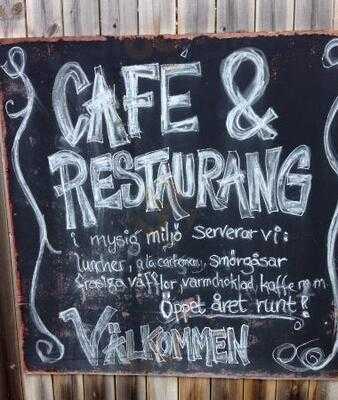 CAFE &
RESTAURANG
i mysig miljö serverar vi:
luncher, a la cartemeny, smörgåsar
frasiga våfflor, varmchoklad, kaffe m.m.
Öppet året runt!
VÄLKOMMEN